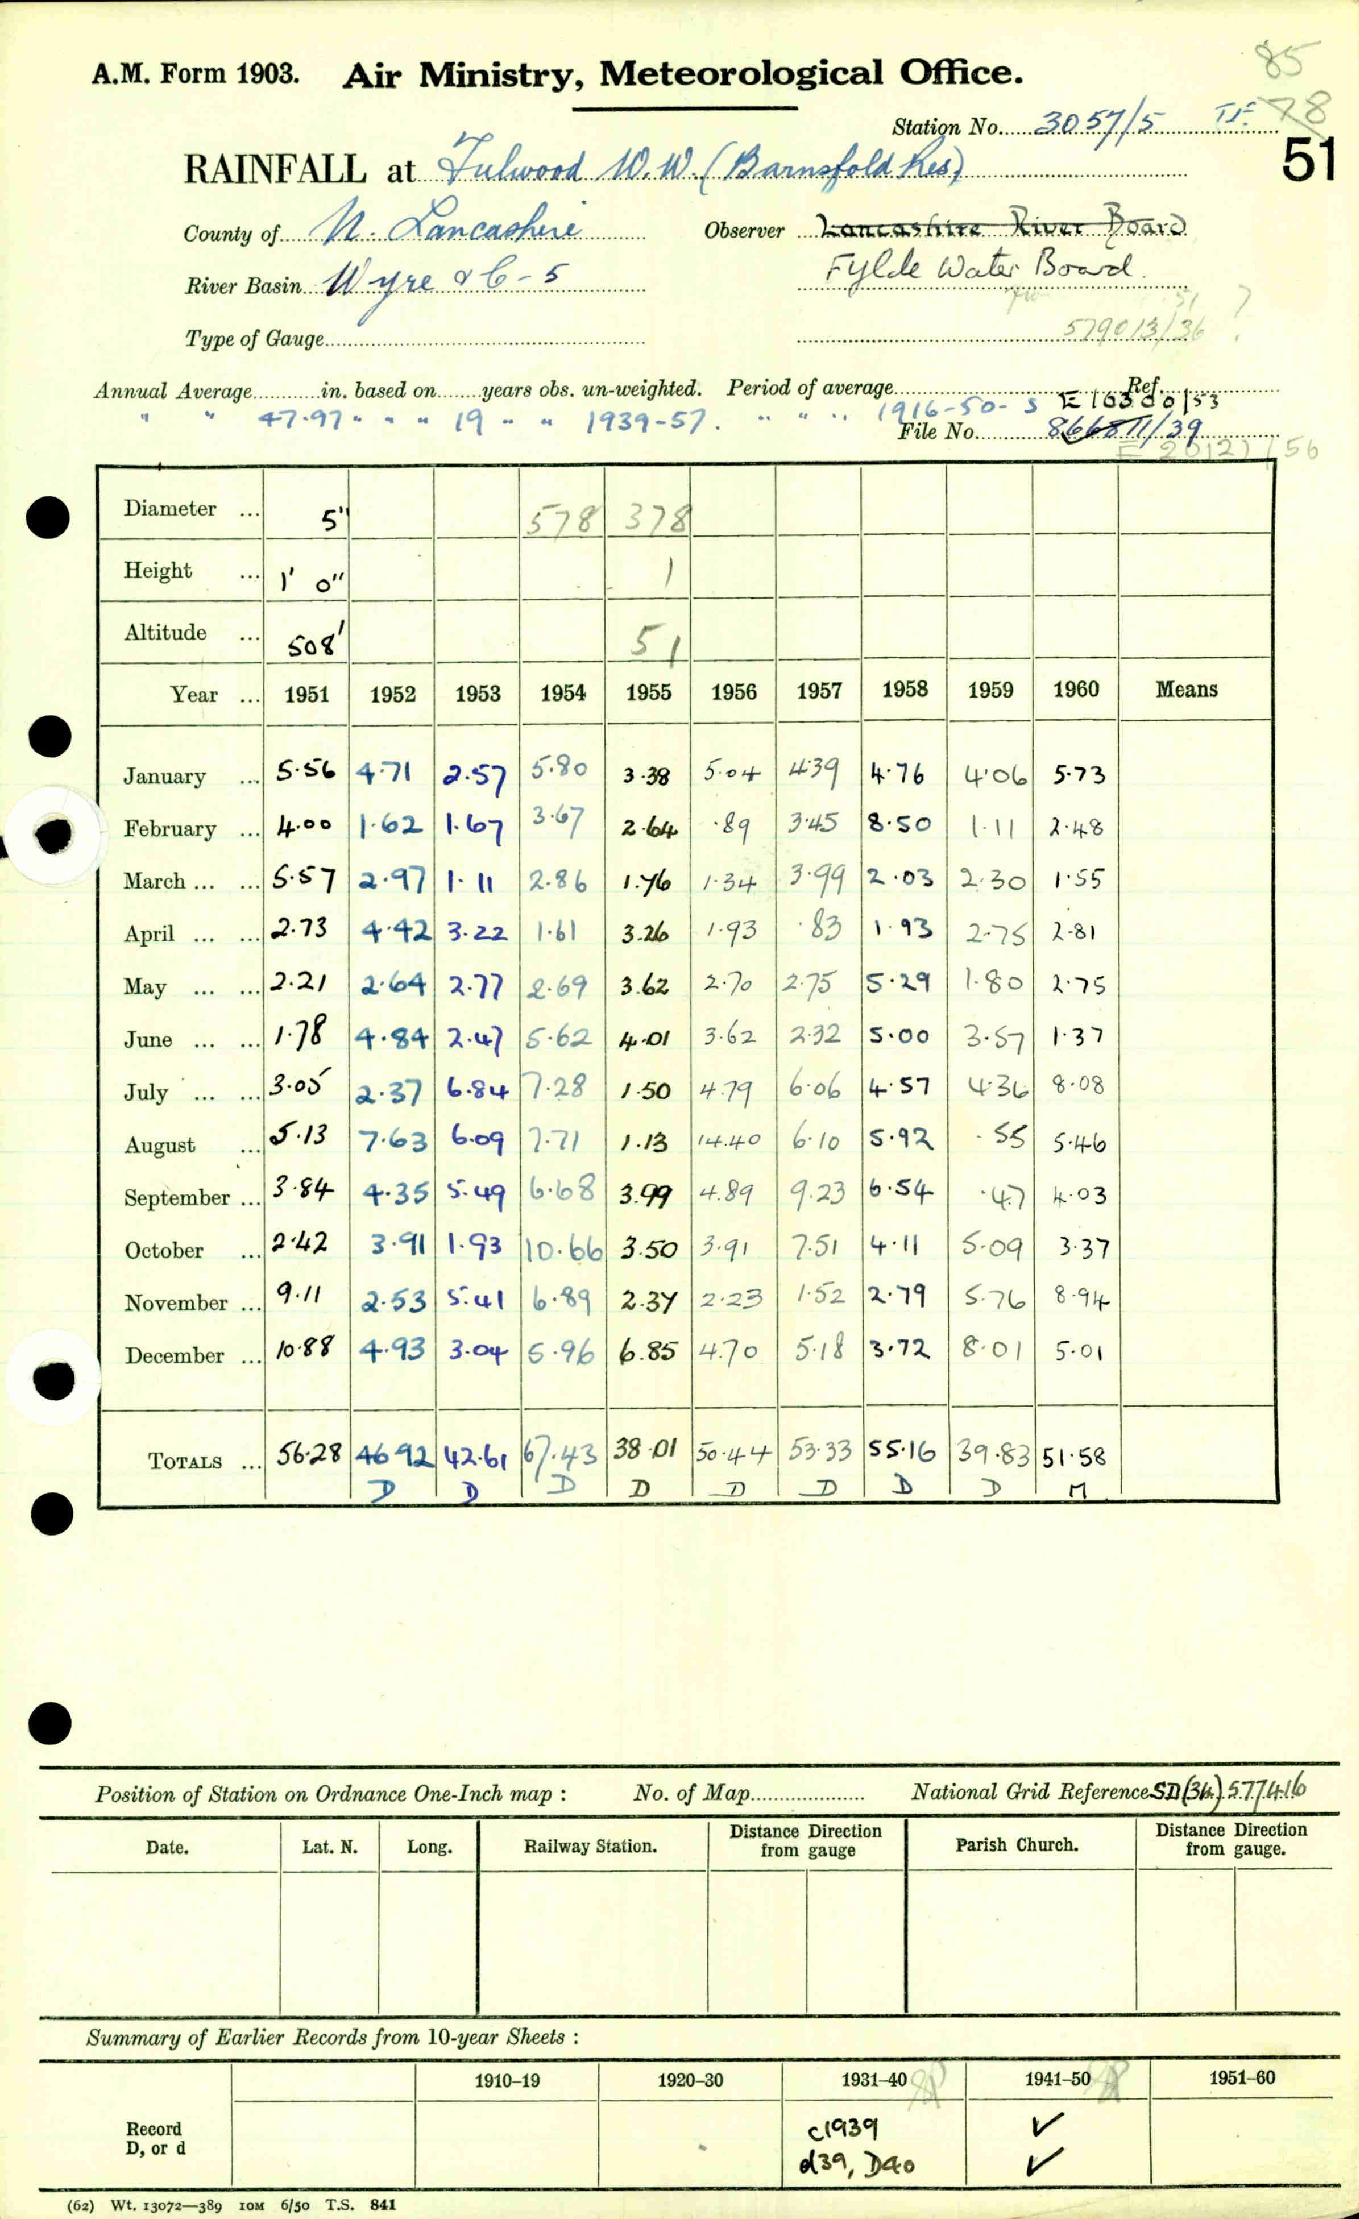 85
A.M. Form 1903. Air Ministry, Meteorological Office.
Station No. 3057/5 78
51
RAINFALL at Fulwood W.W. (Barnsfold Res)
County of N. Lancashire Observer Lancashire River Board
River Basin Wyre & C-5 Fylde Water Board
Type of Gauge 579013/36 ?
Annual Average in. based on years obs. un-weighted. Period of average Ref. E16380/53
" " 47.97 " " " 19 " " 1939-57. " " " 1916-50- S
File No. 866811/39
E 20127/56
Diameter ... 5" 578 378
Height ... 1' 0" 1
Altitude ... 508' 51
Year ... 1951 1952 1953 1954 1955 1956 1957 1958 1959 1960 Means
January ... 5.56 4.71 2.57 5.80 3.38 5.04 4.39 4.76 4.06 5.73
February ... 4.00 1.62 1.67 3.67 2.64 .89 3.45 8.50 1.11 2.48
March ... ... 5.57 2.97 1.11 2.86 1.76 1.34 3.99 2.03 2.30 1.55
April ... ... 2.73 4.42 3.22 1.61 3.26 1.93 .83 1.93 2.75 2.81
May ... ... 2.21 2.64 2.77 2.69 3.62 2.70 2.75 5.29 1.80 2.75
June ... ... 1.78 4.84 2.47 5.62 4.01 3.62 2.32 5.00 3.57 1.37
July ... ... 3.05 2.37 6.84 7.28 1.50 4.79 6.06 4.57 4.36 8.08
August ... 5.13 7.63 6.09 7.71 1.13 14.40 6.10 5.92 .55 5.46
September ... 3.84 4.35 5.49 6.68 3.99 4.89 9.23 6.54 .47 4.03
October ... 2.42 3.91 1.93 10.66 3.50 3.91 7.51 4.11 5.09 3.37
November ... 9.11 2.53 5.41 6.89 2.37 2.23 1.52 2.79 5.76 8.94
December ... 10.88 4.93 3.04 5.96 6.85 4.70 5.18 3.72 8.01 5.01
TOTALS ... 56.28 46.92 42.61 67.43 38.01 50.44 53.33 55.16 39.83 51.58
D D D D D D D D M
Position of Station on Ordnance One-Inch map : No. of Map National Grid Reference SD(34)577416
Date. Lat. N. Long. Railway Station. Distance Direction from gauge Parish Church. Distance Direction from gauge.
Summary of Earlier Records from 10-year Sheets :
1910-19 1920-30 1931-40 1941-50 1951-60
Record c1939 ✓
D, or d d39, D40 ✓
(62) Wt. 13072—389 10M 6/50 T.S. 841